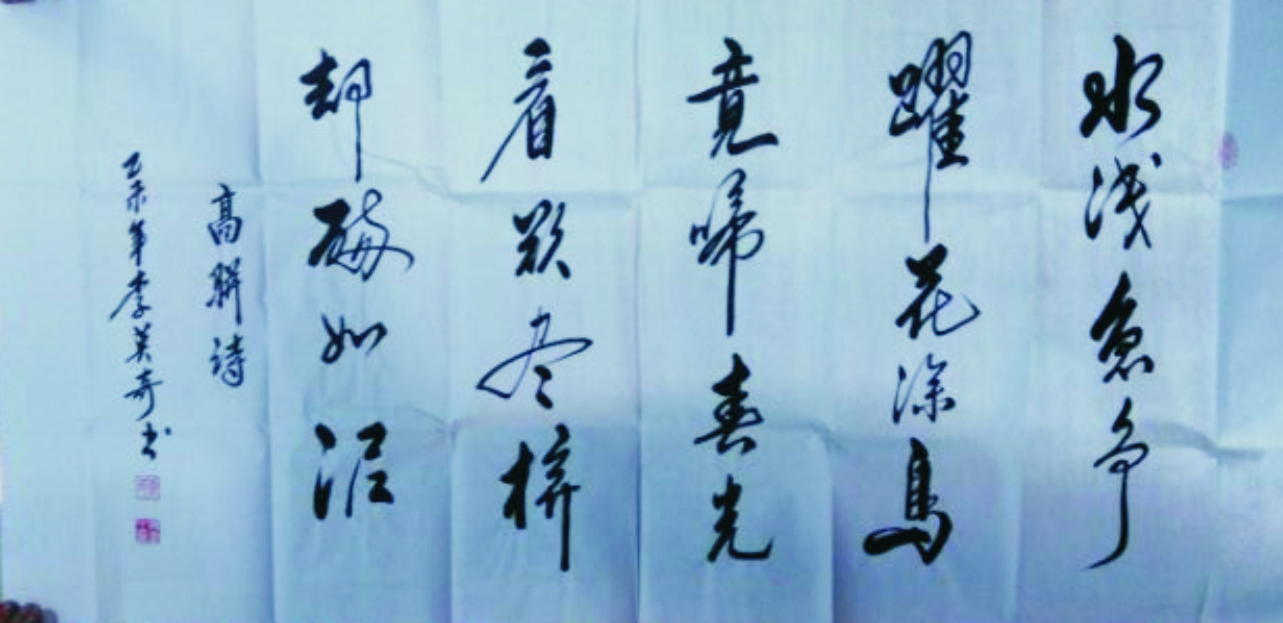 水浅鱼争
躍花深鸟
竟啼春光
看欲尽拚
却醉如泥
高駢诗
乙未年李英奇书